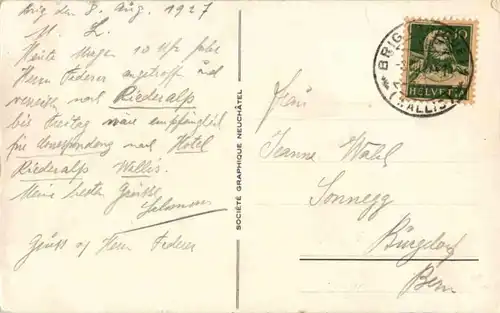 Brig den 3. Aug. 1927
M. L.
Heute Morgen 10 Uhr habe
Herrn Federer angetroff und
verreisen nach Riederalp
bis Freitag wäre empfänglich
für Correspondenz nach Hotel
Riederalp Wallis.
Meine besten Grüsse
Gruss v/ Herrn Federer
SOCIÉTÉ GRAPHIQUE NEUCHÂTEL
BRIG
HELVETIA
Frau
Jeanne Wahl
Sonnegg
Burgdorf
Bern